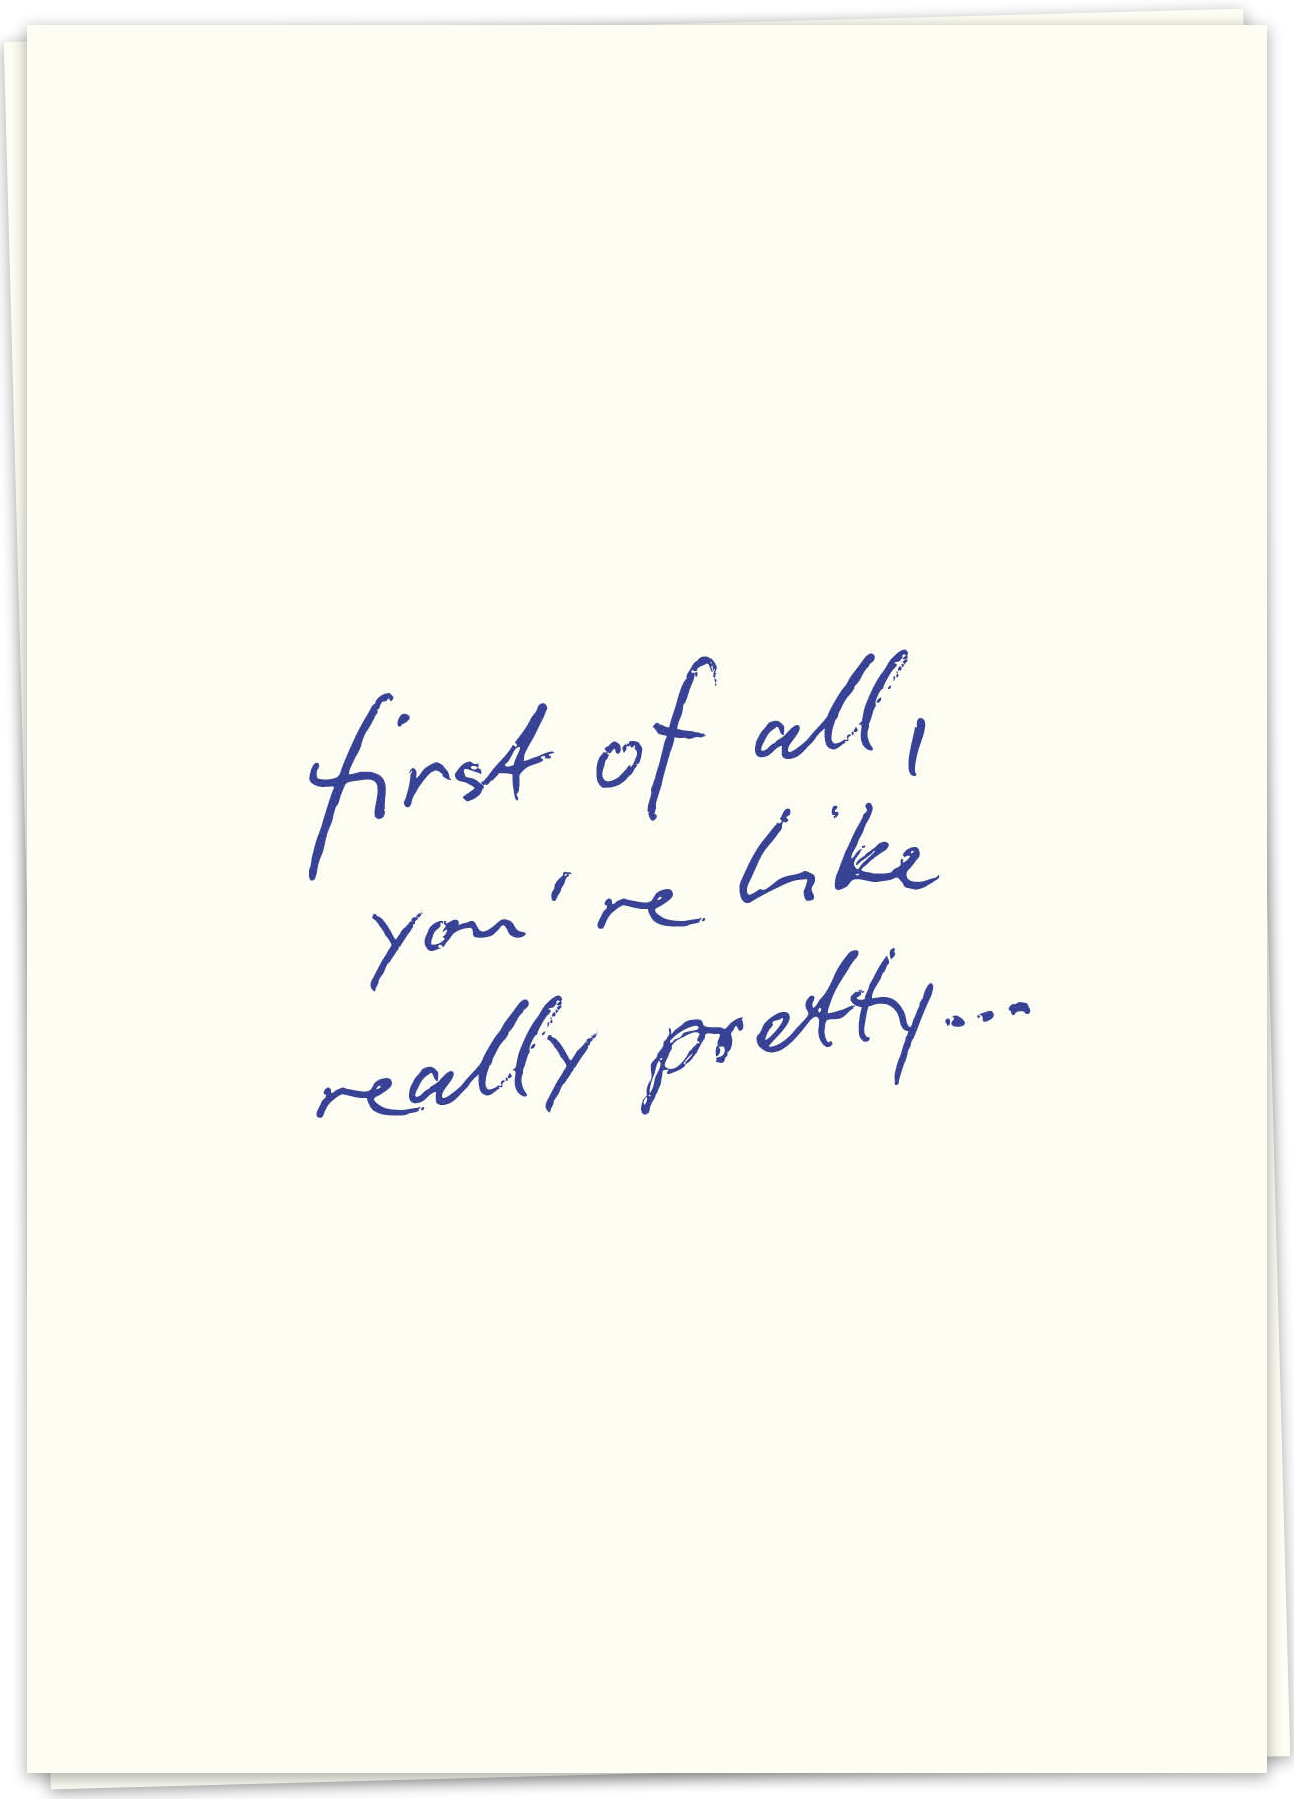 first of all,
you're like
really pretty...